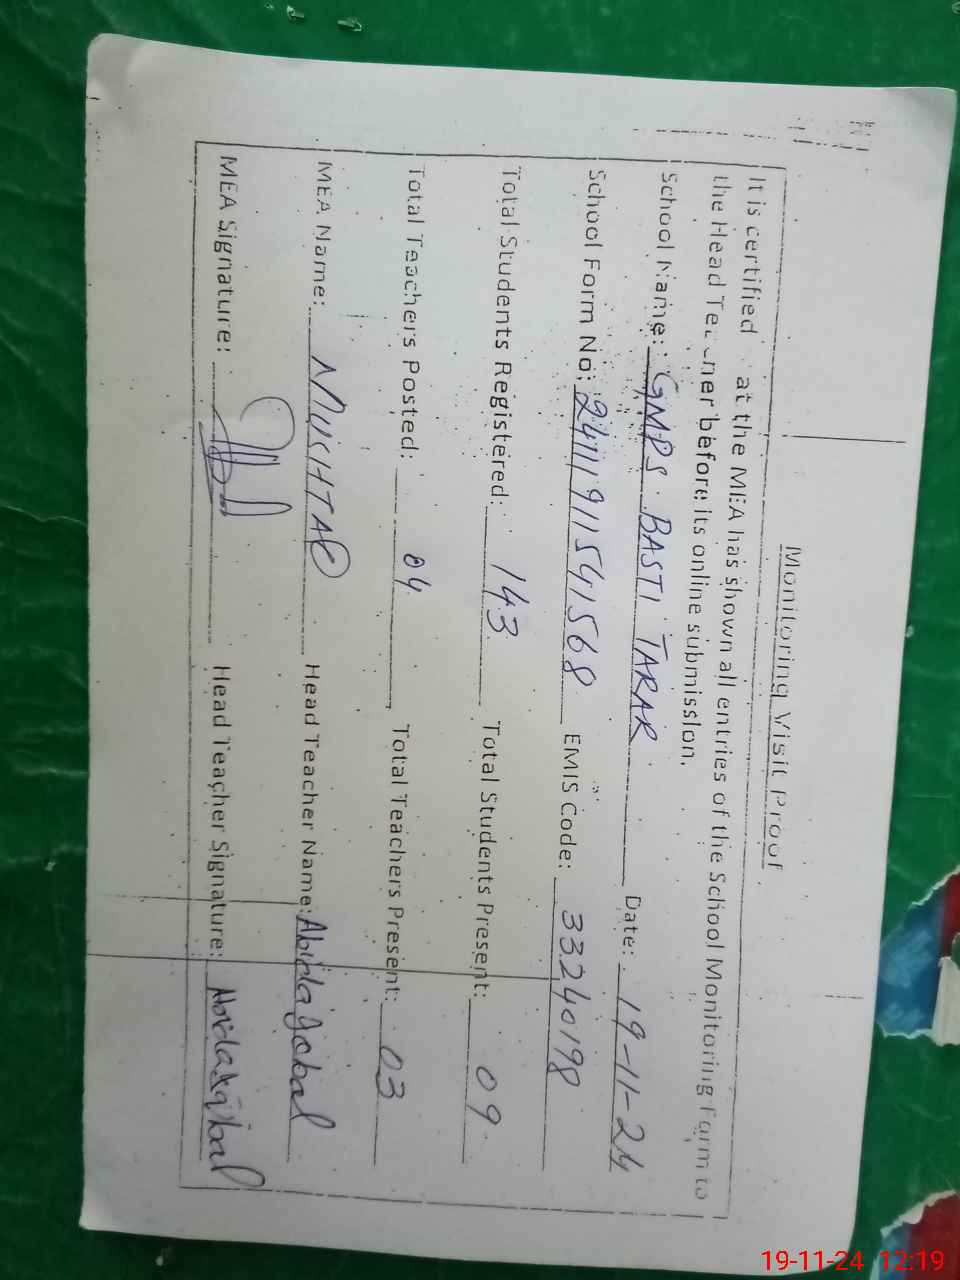 Monitoring Visit Proof
It is certified at the MEA has shown all entries of the School Monitoring Farm to
the Head Teacher before its online submission.
School Name: GMPS BASTI TARAR Date: 19-11-24
School Form No: 24111911541568 EMIS Code: 33240198
Total Students Registered: 143 Total Students Present: 09
Total Teachers Posted: 04 Total Teachers Present: 03
MEA Name: MUSHTAQ Head Teacher Name: Abida Iqbal
MEA Signature: Head Teacher Signature: Abida Iqbal
19-11-24 12:19